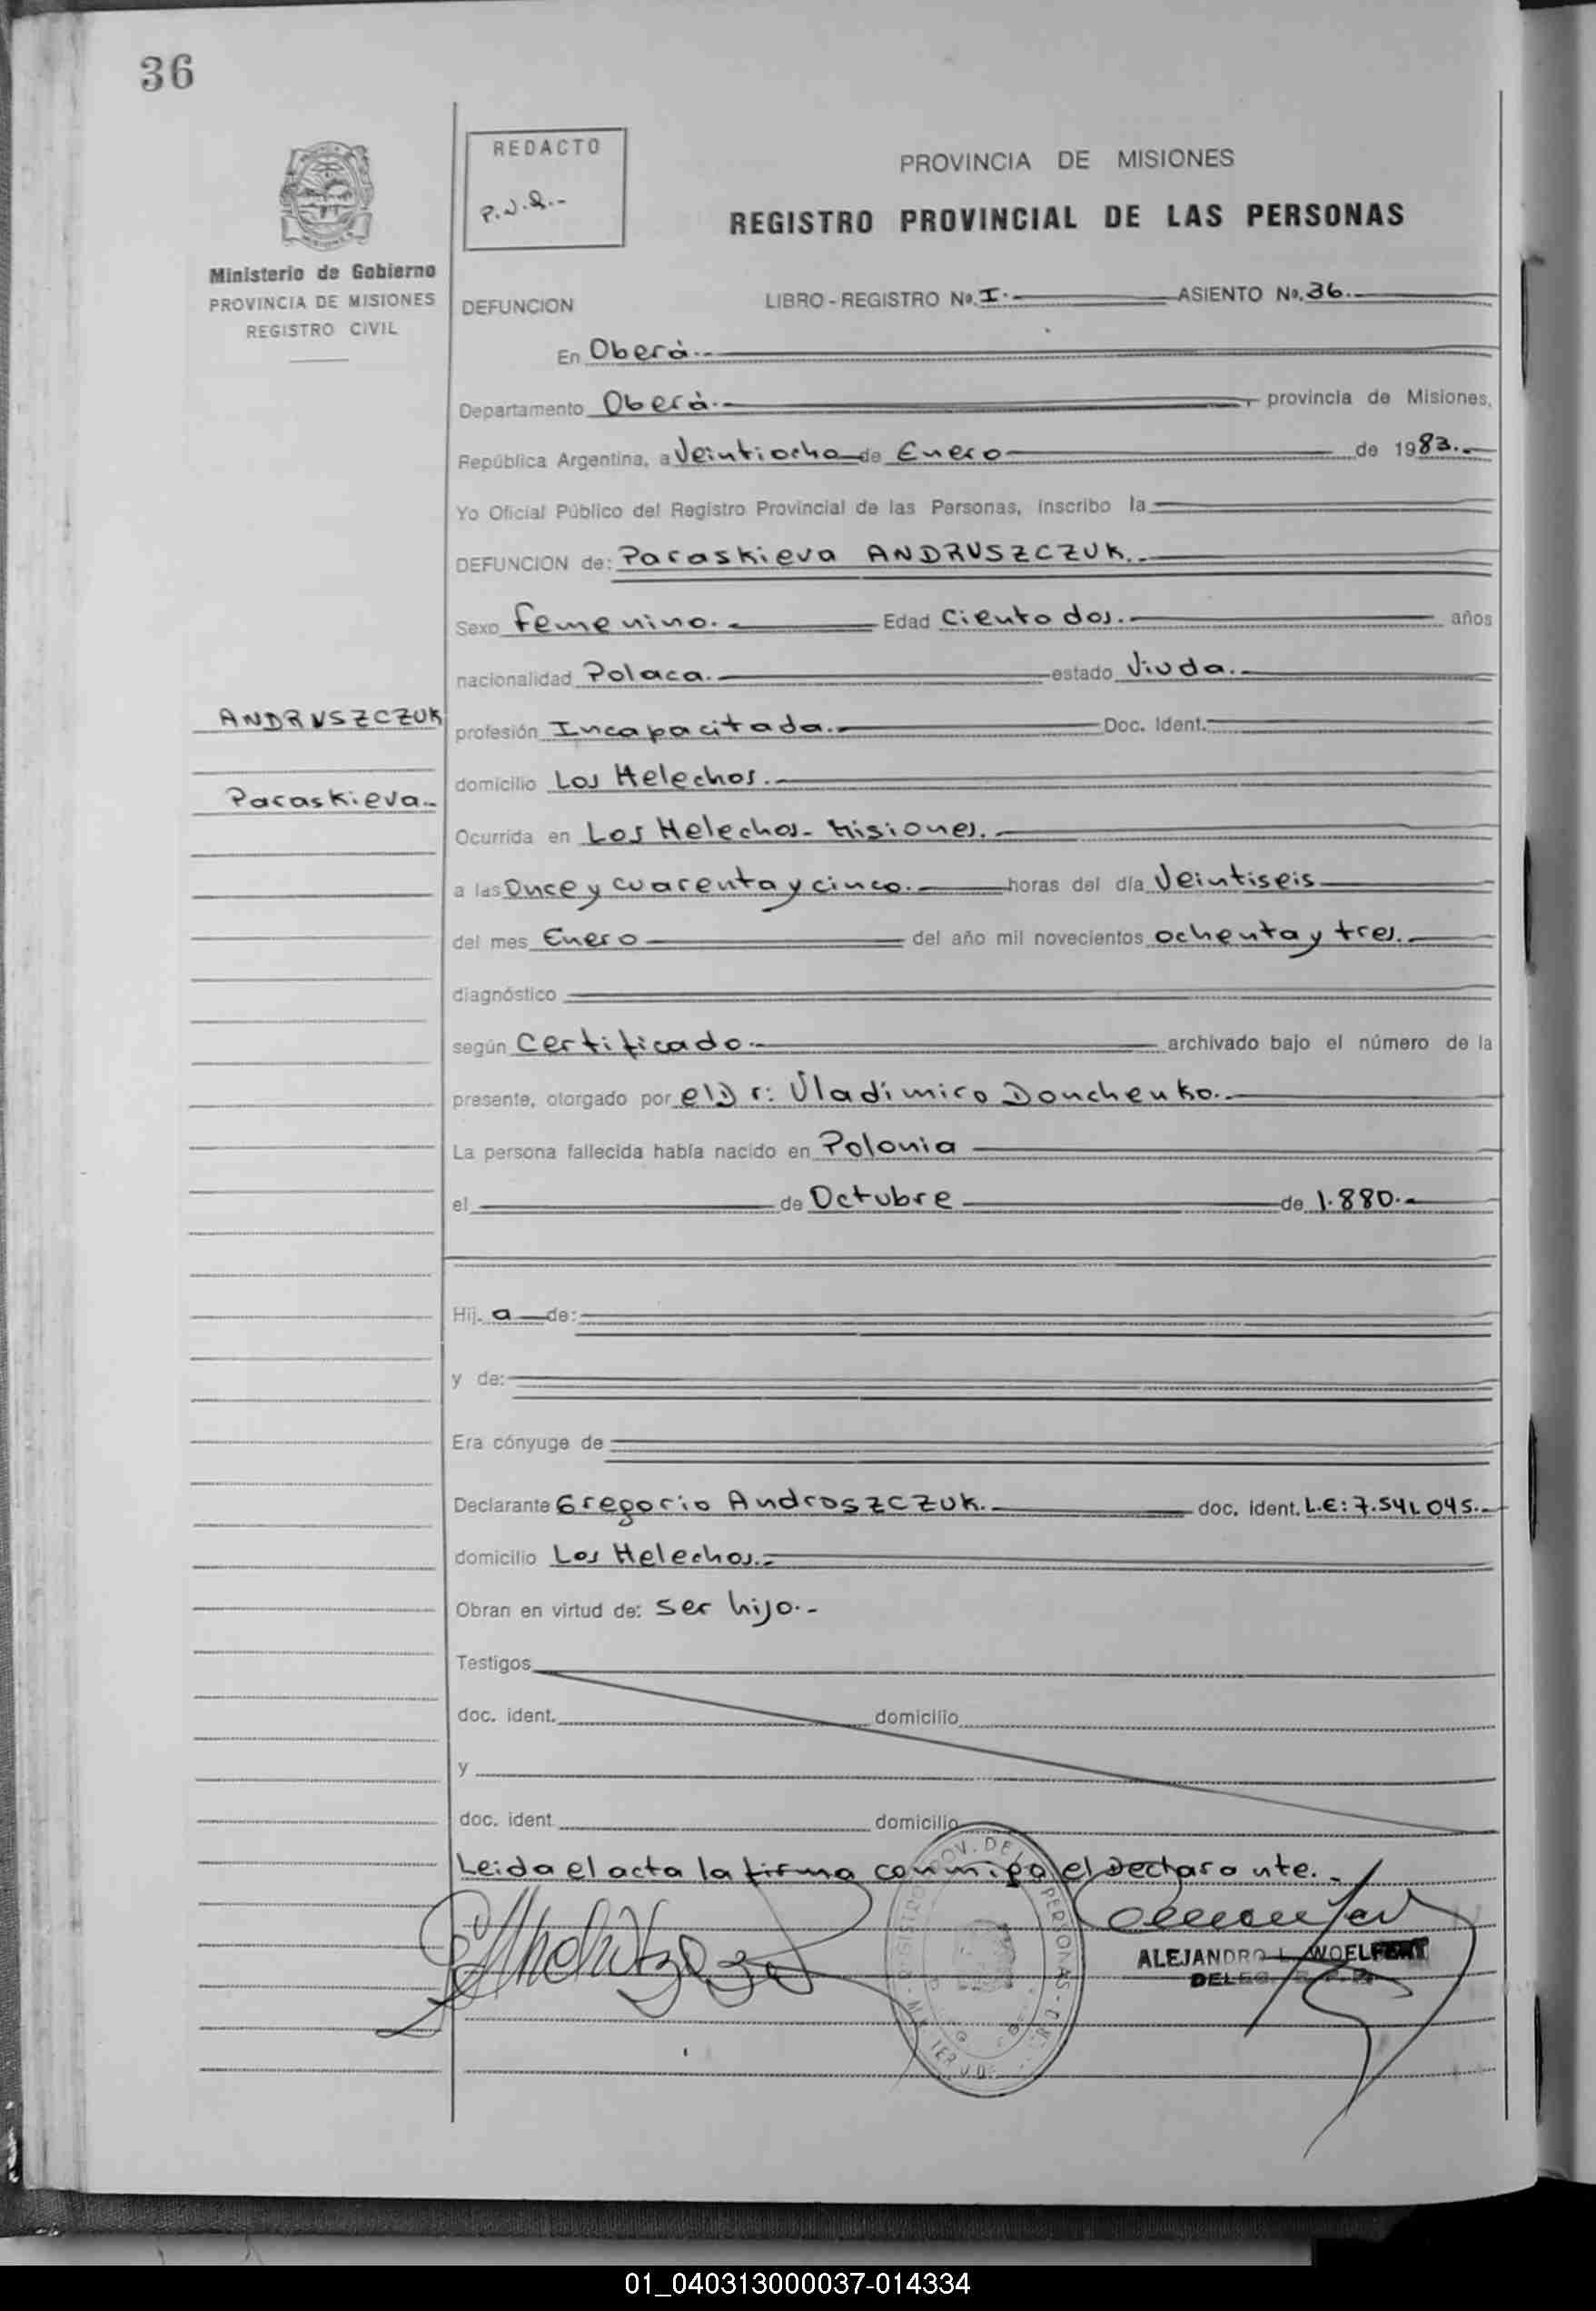 36
REDACTO
P.J.R.-
PROVINCIA DE MISIONES
REGISTRO PROVINCIAL DE LAS PERSONAS
Ministerio de Gobierno
PROVINCIA DE MISIONES
REGISTRO CIVIL
DEFUNCION LIBRO-REGISTRO No. I.- ASIENTO No. 36.-
En Oberá.-
Departamento Oberá.- , provincia de Misiones,
República Argentina, a Veintiocho de Enero de 1983.-
Yo Oficial Público del Registro Provincial de las Personas, inscribo la
DEFUNCION de: Paraskieva ANDRUSZCZUK.-
Sexo femenino.- Edad Ciento dos.- años
nacionalidad Polaca.- estado Viuda.-
ANDRUSZCZUK
Paraskieva.-
profesión Incapacitada.- Doc. Ident.
domicilio Los Helechos.-
Ocurrida en Los Helechos- Misiones.-
a las Once y cuarenta y cinco.- horas del día Veintiseis
del mes Enero del año mil novecientos ochenta y tres.-
diagnóstico
según Certificado.- archivado bajo el número de la
presente, otorgado por el Dr: Vladimiro Donchenko.-
La persona fallecida había nacido en Polonia
el de Octubre de 1.880.-
Hij. a de:
y de:
Era cónyuge de
Declarante Gregorio AndrosZCZUK.- doc. ident. L.E: 7.541.045.-
domicilio Los Helechos.-
Obran en virtud de: ser hijo.-
Testigos
doc. ident. domicilio
y
doc. ident domicilio
Leida el acta la firma conmigo el Declarante.-
ALEJANDRO L. WOELFERT
01_040313000037-014334